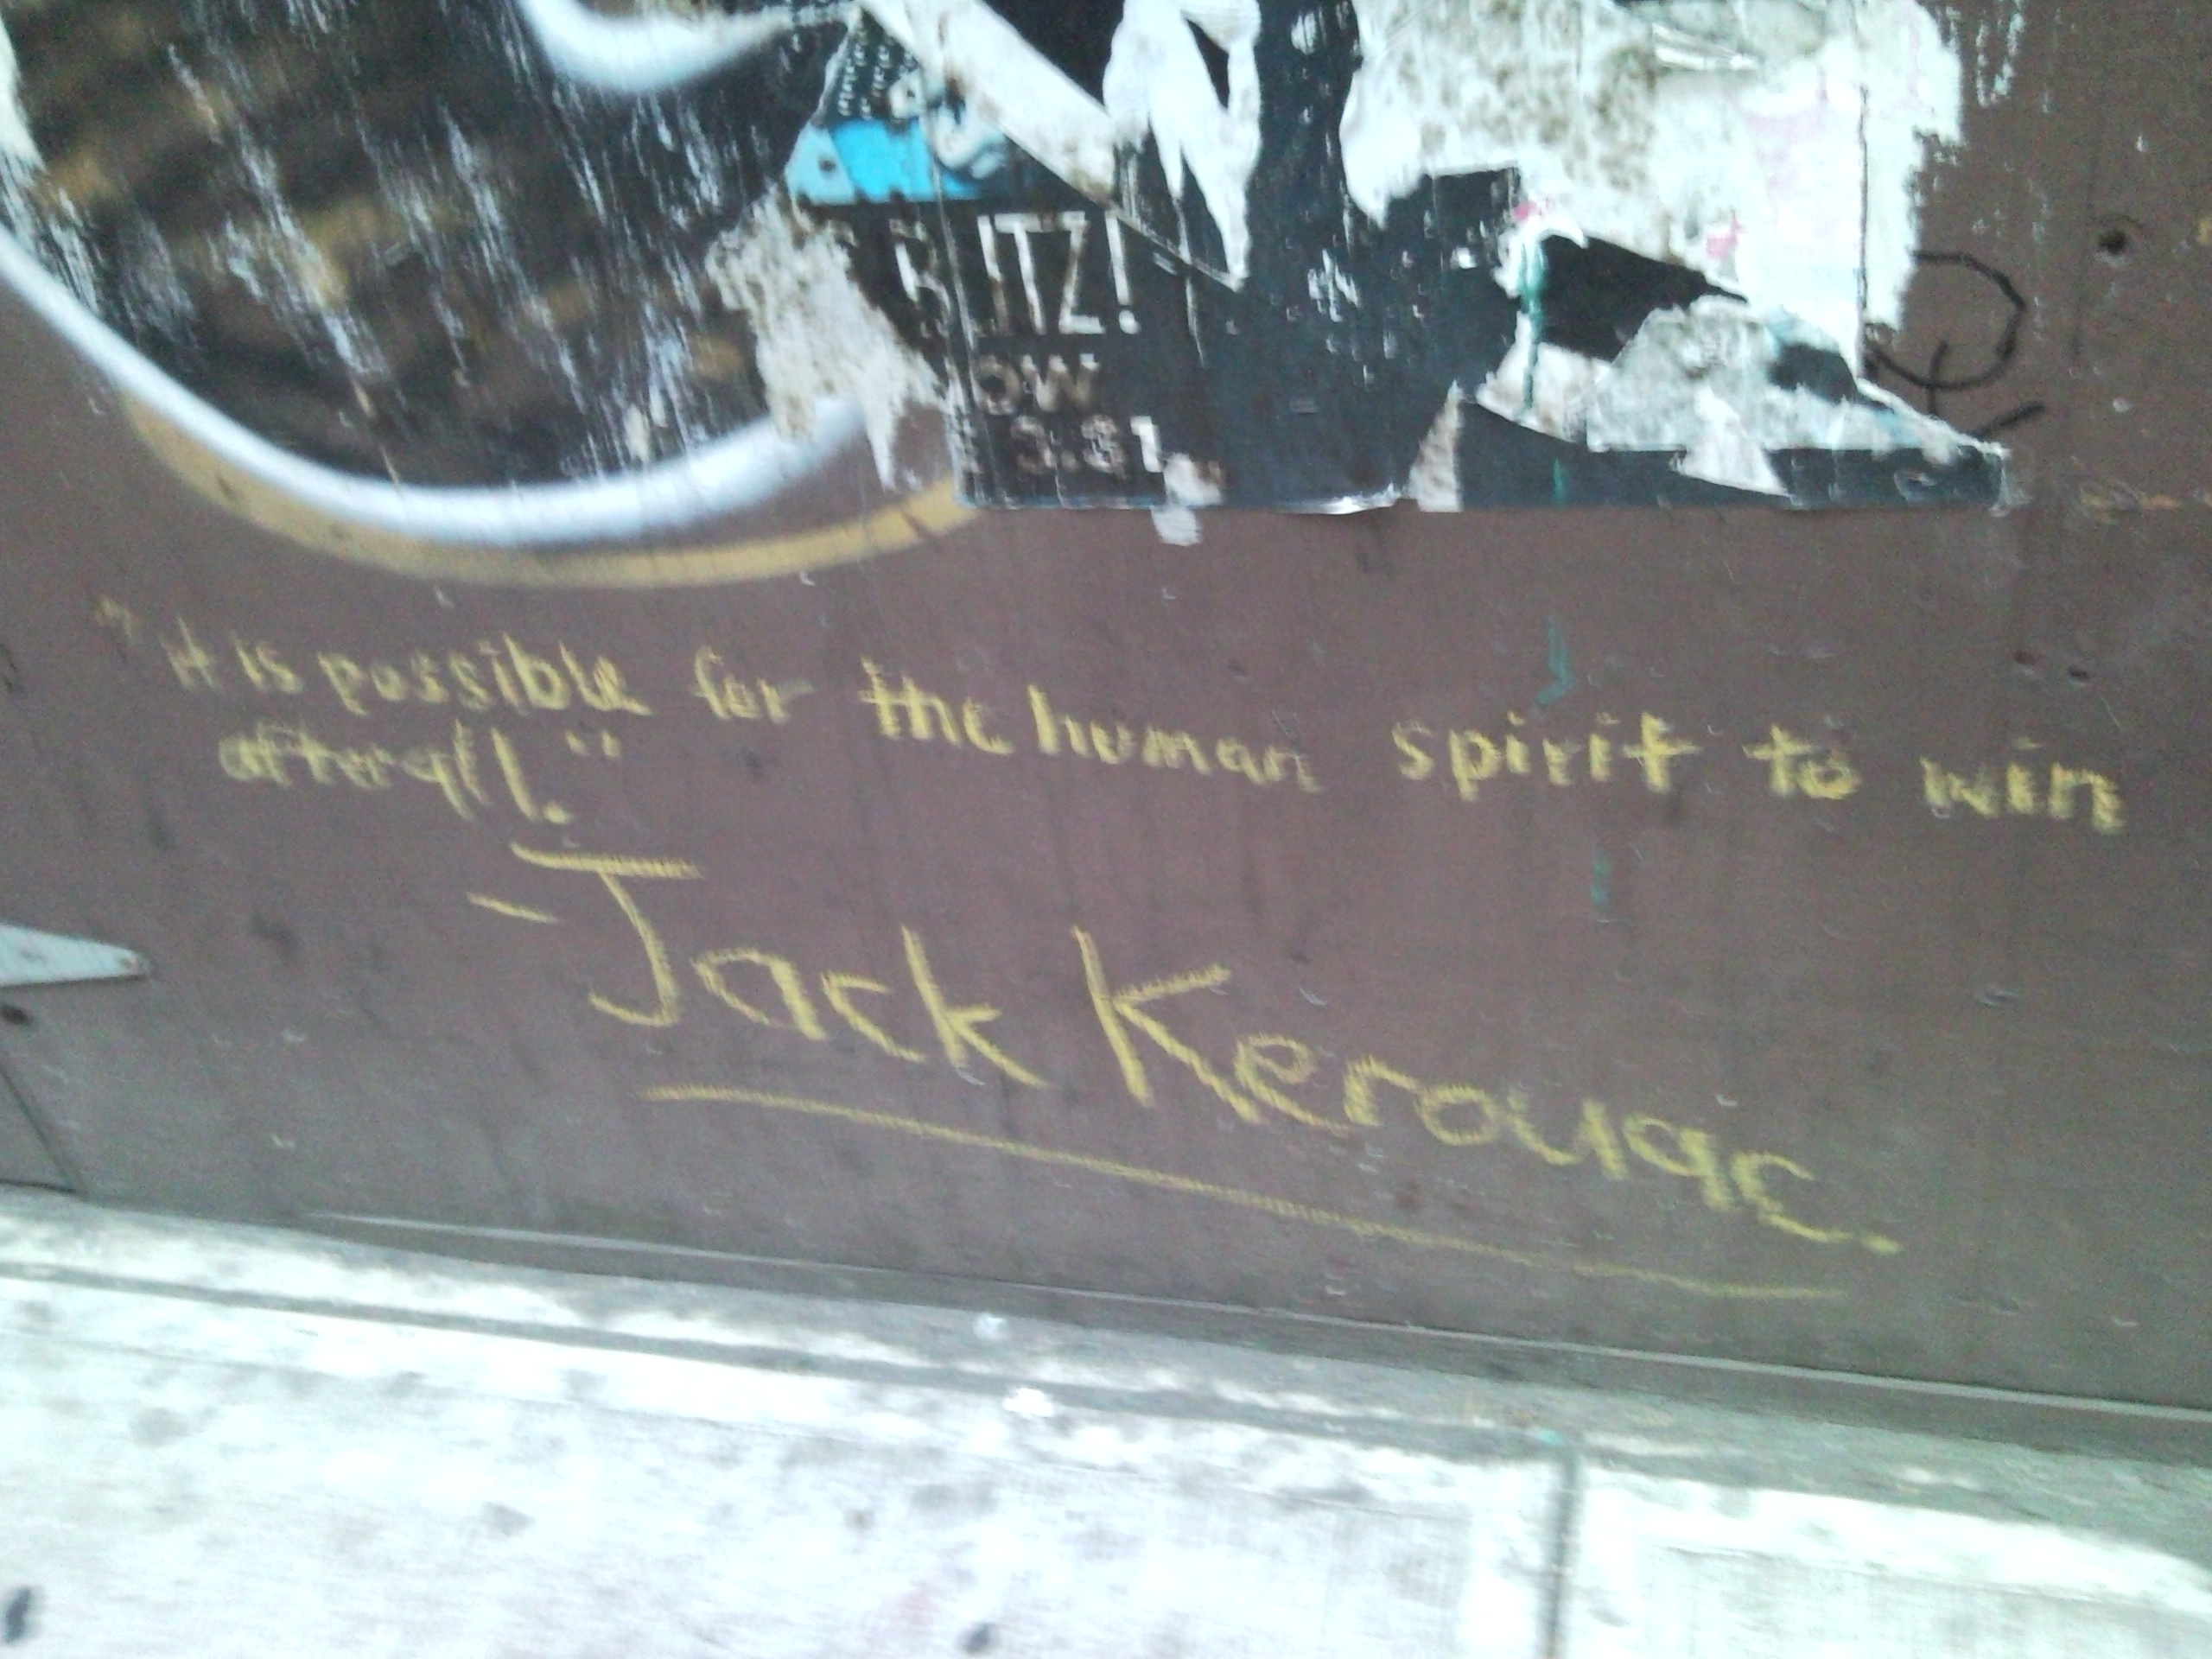 BLITZ!
OW
3.31
"it is possible for the human spirit to win
afterall."
-Jack Kerouac.